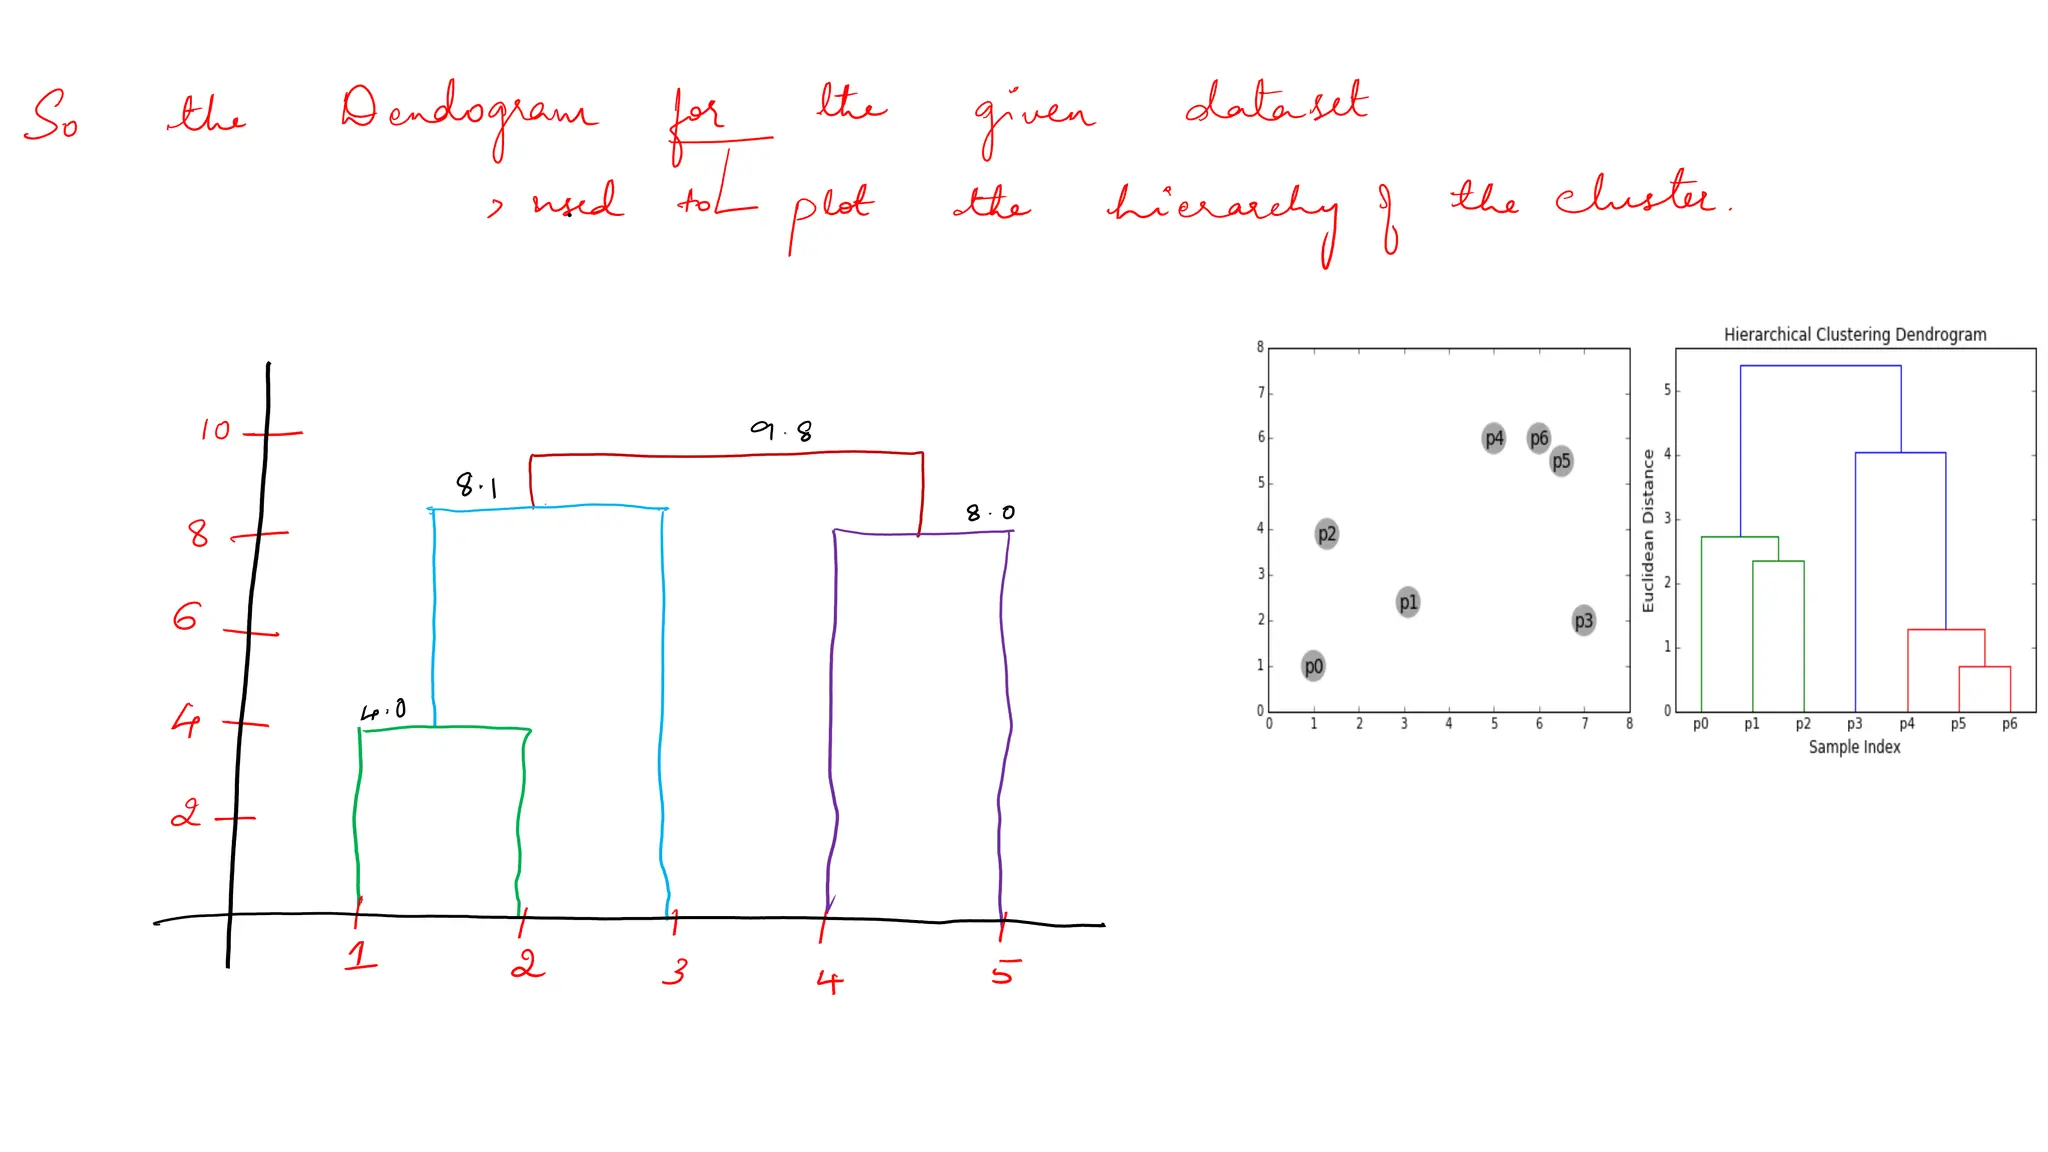 So the Dendogram for the given dataset
> used to plot the hierarchy of the cluster.
10
8
6
4
2
9.8
8.1
8.0
4.0
1 2 3 4 5
8
7
6
5
4
3
2
1
0
0 1 2 3 4 5 6 7 8
p4 p6
p5
p2
p1
p3
p0
Hierarchical Clustering Dendrogram
Euclidean Distance
5
4
3
2
1
0
p0 p1 p2 p3 p4 p5 p6
Sample Index